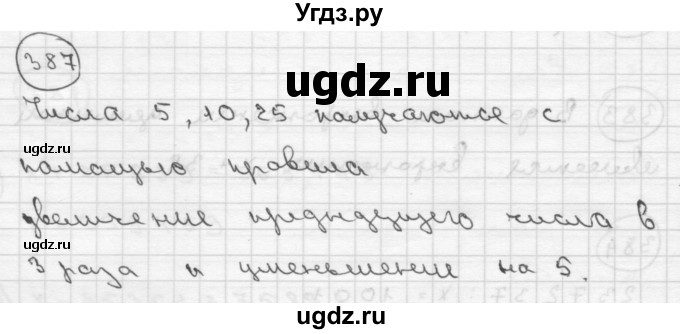 Угдз.ру
387
ugdz.ru
Числа 5, 10, 25 получаются с
ugdz.ru
помощью правила
увеличение предыдущего числа в
ugdz.ru
3 раза и уменьшение на 5.
ugdz.ru
ugdz.ru